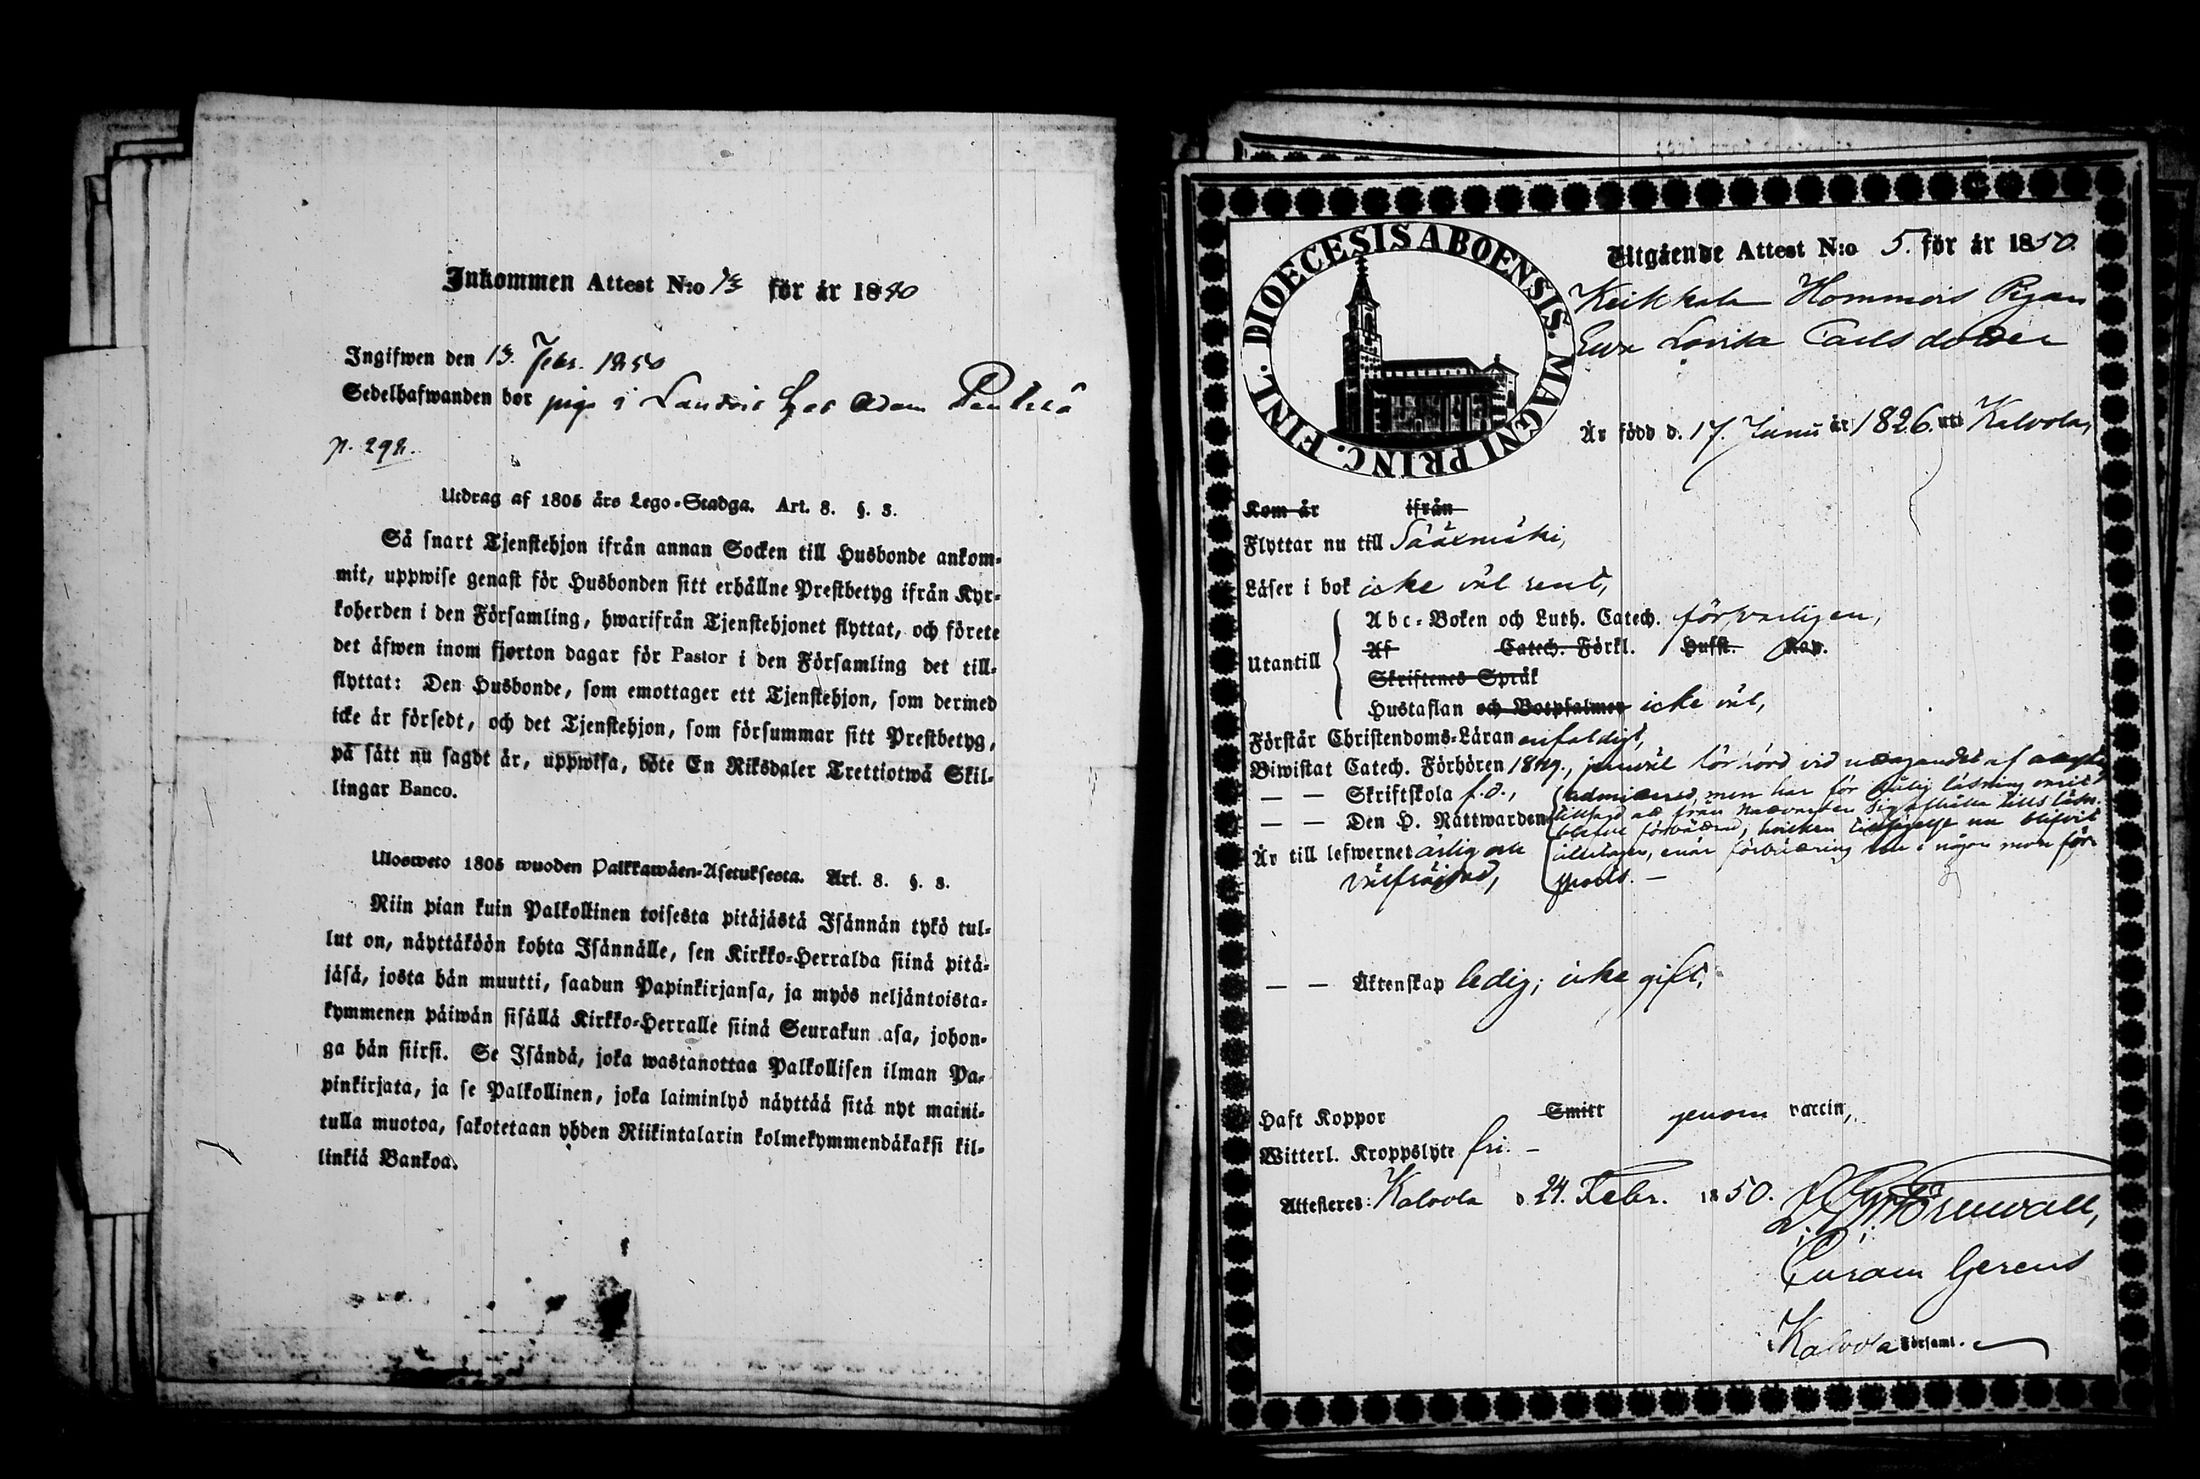 Inkommen Attest N:o 13 för år 18
Ingifwen den 13. Febr. 1850
Sedelhafwanden bor piga i hos Adam
p. 298.
Utdrag af 1805 års Lego-Stadga. Art. 8. §. 3.
Så snart Tjenstehjon ifrån annan Socken till Husbonde ankom-
mit, uppwise genast för Husbonden sitt erhållne Prestbetyg ifrån Kyr-
koherden i den Församling, hwarifrån Tjenstehjonet flyttat, och förete
det äfwen inom fjorton dagar för Pastor i den Församling det till-
flyttat: Den Husbonde, som emottager ett Tjenstehjon, som dermed
icke är försedt, och det Tjenstehjon, som försummar sitt Prestbetyg,
på sätt nu sagdt är, uppwisa, böte En Riksdaler Trettiotwå Skil-
lingar Banco.
Ulosweto 1805 wuoden Palkkawäen-Asetuksesta. Art. 8. §. 3.
Niin pian kuin Palkollinen toisesta pitäjästä Isännän tykö tul-
lut on, näyttäköön kohta Isännälle, sen Kirkko-Herralda siinä pitä-
jäsä, josta hän muutti, saadun Papinkirjansa, ja myös neljäntoista-
kymmenen päiwän sisällä Kirkko-Herralle siinä Seurakun asa, johon-
ga hän siirsi. Se Isändä, joka wastanottaa Palkollisen ilman Pa-
pinkirjata, ja se Palkollinen, joka laiminlyö näyttää sitä nyt maini-
tulla muotoa, sakotetaan yhden Riikintalarin kolmekymmendäkaksi kil-
linkiä Bankoa.
DIOECESIS ABOENSIS. MAGNI PRINC. FINL.
Utgående Attest N:o 5. för år 1850.
Keikkala Hommois Pigan
Ewa Lovisa Carlsdotter
År född d. 17. Junii år 1826. uti Kalvola,
Kom år ifrån
Flyttar nu till Sääxmäki,
Läser i bok icke väl rent,
Utantill
Abc-Boken och Luth. Catech. försvarligen,
Af Catech. Förkl. Husst. Kap.
Skriftenes Språk
Hustaflan och Botpsalmer icke väl,
Förstår Christendoms-Läran enfaldigt,
Biwistat Catech. Förhören 1849., jemväl förhörd vid uttagandet af
— — Skriftskola f. d., admitterad, men har för dålig läsning
— — Den H. Nattwarden från Nattvarden tills läsn.
blefve förbättrad, hvilken nu blifvit
År till lefwernet ärlig och förbättring i någon mon för-
välfräjdad, sports. —
— — Äktenskap ledig; icke gift,
Haft Koppor Smitt genom vaccin,
Witterl. Kroppslyte fri. —
Attesteres: Kalvola d. 24. Febr. 1850.
Curam Gerens
Kalvola Församl.